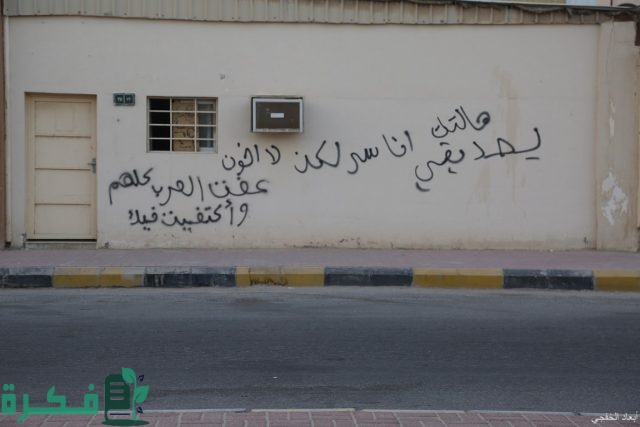 يصديقي انا سر لكن لا اخون
عفت العرب كلهم
وأكتفيت فيك
فكرة
أبعاد الخفجي